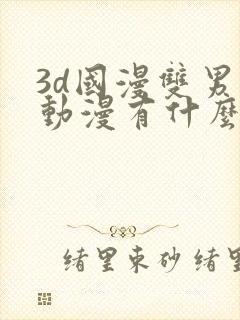 3d國漫雙男
動漫有什麼
緒里束砂 緒里